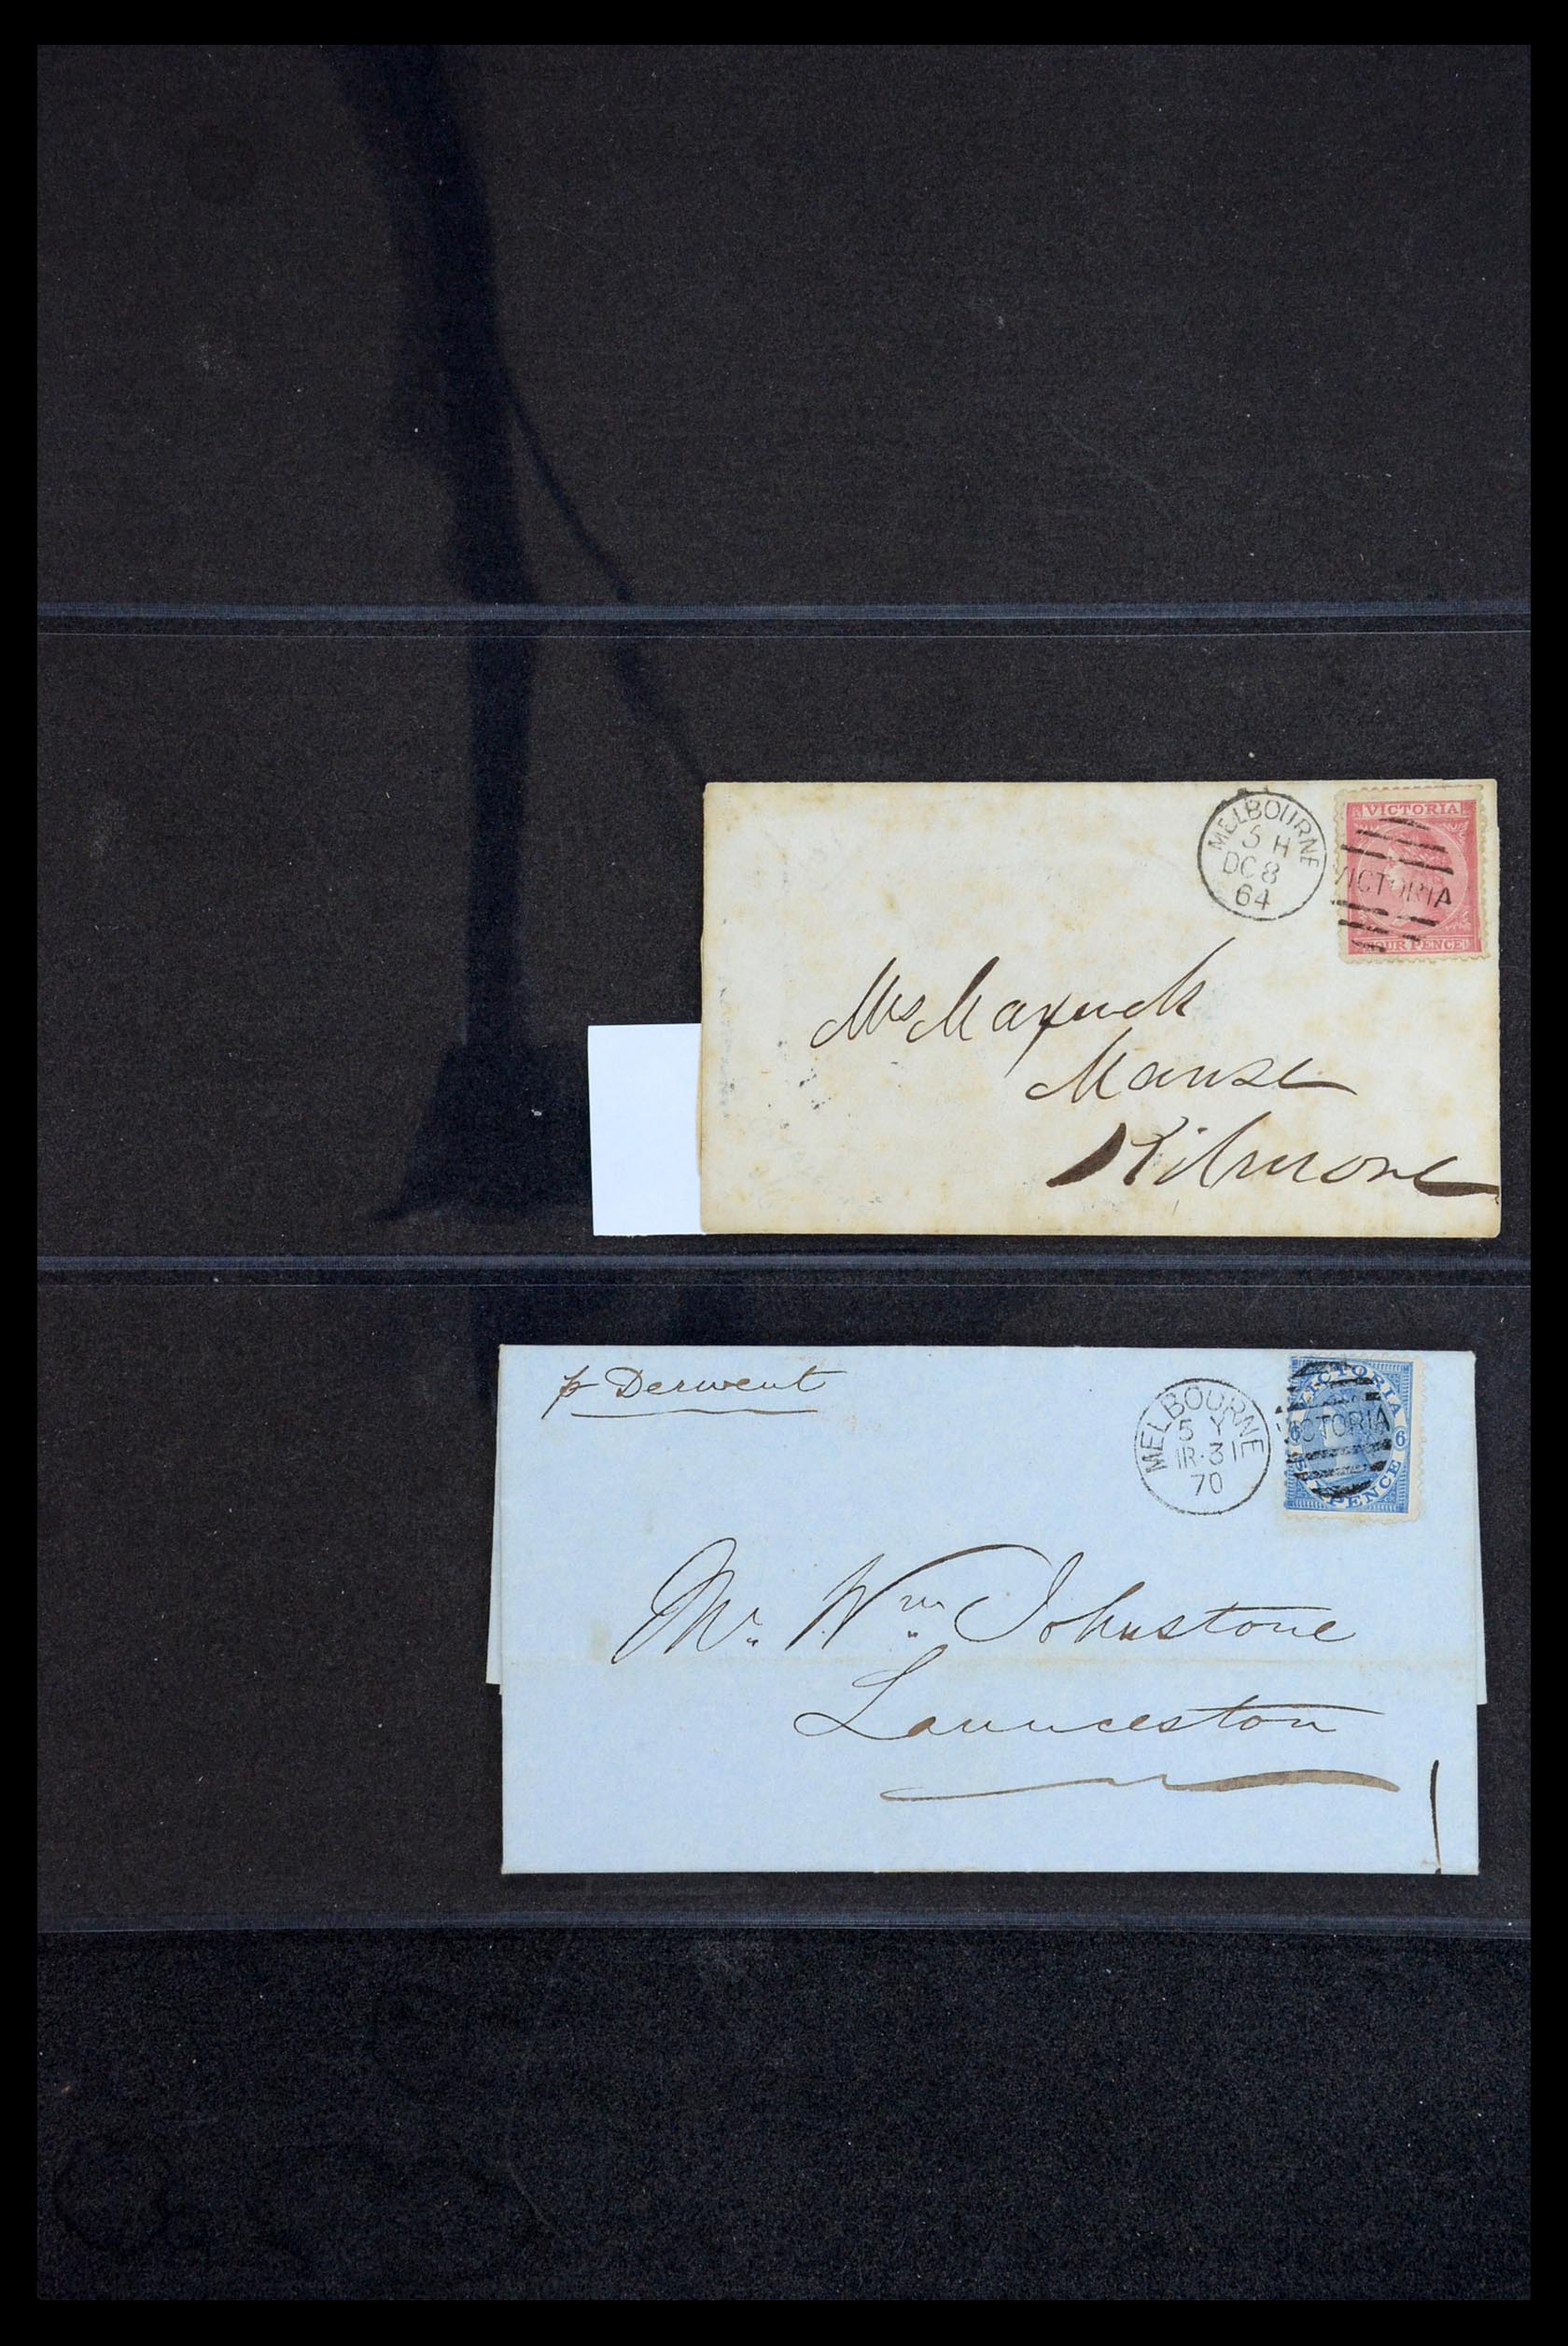 MELBOURNE
5 H
DC 8
64
VICTORIA
VICTORIA
FOUR PENCE
Mrs
Manse
Kilmore
p Derwent
MELBOURNE
5 Y
R·31
70
VICTORIA
VICTORIA
6 6
PENCE
Mr. Wm. Johnstone
Launceston